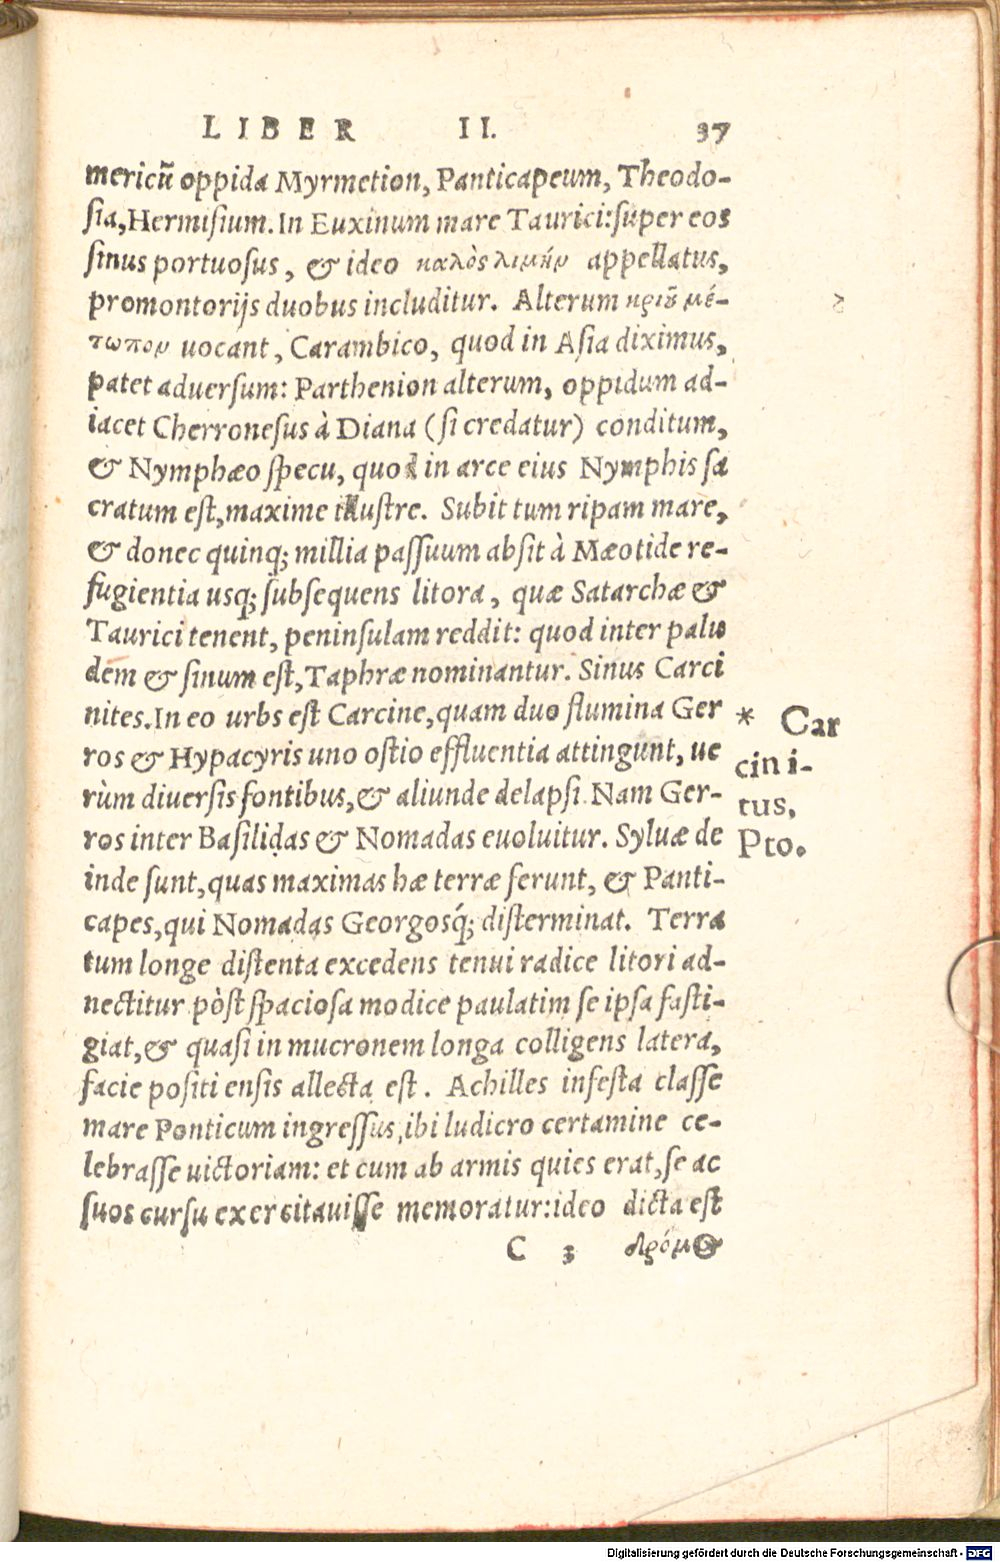 LIBER II. 37
mericũ oppida Myrmetion, Panticapeum, Theodo-
sia, Hermisium. In Euxinum mare Taurici: super eos
sinus portuosus, & ideo καλὸς λιμὴν appellatus,
promontorijs duobus includitur. Alterum κριοῦ μέ-
τωπον uocant, Carambico, quod in Asia diximus,
patet aduersum: Parthenion alterum, oppidum ad-
iacet Cherronesus à Diana (si credatur) conditum,
& Nymphæo specu, quod in arce eius Nymphis sa
cratum est, maxime illustre. Subit tum ripam mare,
& donec quinq; millia passuum absit à Mæotide re-
fugientia usq; subsequens litora, quæ Satarchæ &
Taurici tenent, peninsulam reddit: quod inter palu
dem & sinum est, Taphræ nominantur. Sinus Carci
nites. In eo urbs est Carcine, quam duo flumina Ger
ros & Hypacyris uno ostio effluentia attingunt, ue
rùm diuersis fontibus, & aliunde delapsi. Nam Ger-
ros inter Basilidas & Nomadas euoluitur. Syluæ de
inde sunt, quas maximas hæ terræ ferunt, & Panti-
capes, qui Nomadas Georgosq́; disterminat. Terra
tum longe distenta excedens tenui radice litori ad-
nectitur pòst spaciosa modice paulatim se ipsa fasti-
giat, & quasi in mucronem longa colligens latera,
facie positi ensis allecta est. Achilles infesta classe
mare Ponticum ingressus, ibi ludicro certamine ce-
lebrasse uictoriam: et cum ab armis quies erat, se ac
suos cursu exercitauisse memoratur: ideo dicta est
C 3 δρόμος
* Car
cini-
tus.
Pto.
Digitalisierung gefördert durch die Deutsche Forschungsgemeinschaft - DFG